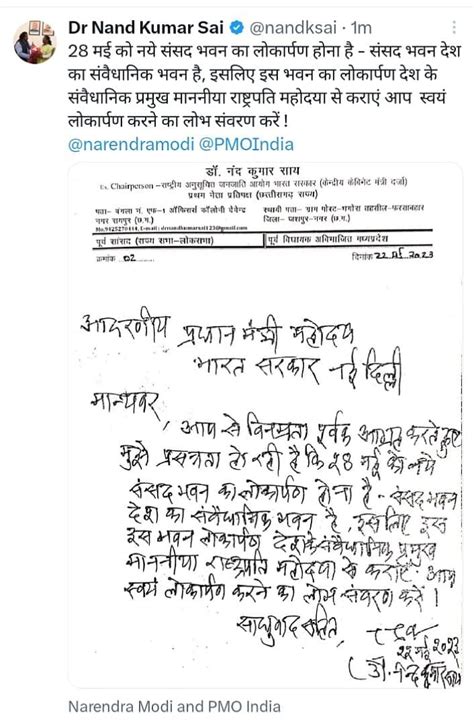 Dr Nand Kumar Sai @nandksai · 1m
28 मई को नये संसद भवन का लोकार्पण होना है - संसद भवन देश
का संवैधानिक भवन है, इसलिए इस भवन का लोकार्पण देश के
संवैधानिक प्रमुख माननीया राष्ट्रपति महोदया से कराएं आप स्वयं
लोकार्पण करने का लोभ संवरण करें !
@narendramodi @PMOIndia
डॉ. नंद कुमार साय
Ex. Chairperson -राष्ट्रीय अनुसूचित जनजाति आयोग भारत सरकार (केन्द्रीय केबिनेट मंत्री दर्जा)
प्रथम नेता प्रतिपक्ष (छत्तीसगढ़ राज्य)
पता- बंगला नं. एफ-1 ऑफिसर्स कॉलोनी देवेन्द्र
नगर रायपुर (छ.ग.)
स्थायी पता- ग्राम पोस्ट-भगोरा तहसील-फरसाबहार
जिला- जशपुर-नगर (छ.ग.)
पूर्व सांसद (राज्य सभा-लोकसभा)
पूर्व विधायक अविभाजित मध्यप्रदेश
क्रमांक 02
दिनांक 22 मई 2023
आदरणीय प्रधान मंत्री महोदय
भारत सरकार नई दिल्ली
मान्यवर,
आप से विनम्रता पूर्वक आग्रह करते हुए
मुझे प्रसन्नता हो रही है कि 28 मई को नये
संसद भवन का लोकार्पण होना है - संसद भवन
देश का संवैधानिक भवन है, इसलिए इस
इस भवन लोकार्पण देश के संवैधानिक प्रमुख
माननीया राष्ट्रपति महोदया से कराएं आप
स्वयं लोकार्पण करने का लोभ संवरण करें !
साधुवाद सहित,
22 मई 2023
(डॉ. नन्द कुमार साय)
Narendra Modi and PMO India